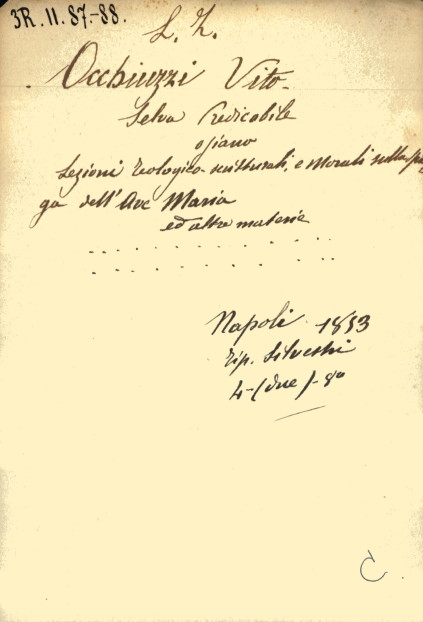 3R. 11. 87-88.
L. Z.
Occhiuzzi Vito-
Selva Predicabile
ossiano
Lezioni Teologico-scritturali, e Morali sulla spie
ga dell'Ave Maria
ed altre materie
Napoli 1853
Tip. Silvestri
4-(due)-8°
C